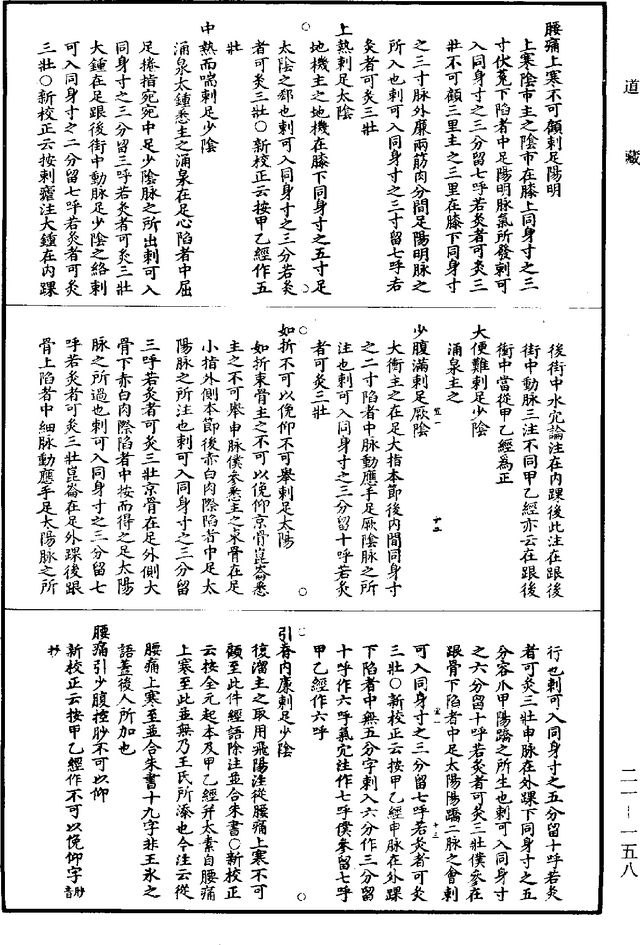 道藏
腰痛上寒不可顧刺足陽明
上寒陰市主之陰市在膝上同身寸之三
寸伏菟下陷者中足陽明脉氣所發刺可
入同身寸之三分留七呼若灸者可灸三
壯不可顧三里主之三里在膝下同身寸
之三寸脉外廉兩筋肉分間足陽明脉之
所入也刺可入同身寸之三寸留七呼若
灸者可灸三壯
上熱刺足太陰
地機主之地機在膝下同身寸之五寸足
太陰之郄也刺可入同身寸之三分若灸
者可灸三壯○新校正云按甲乙經作五
壯
中熱而喘刺足少陰
涌泉太鍾悉主之涌泉在足心陷者中屈
足捲指宛宛中足少陰脉之所出刺可入
同身寸之三分留三呼若灸者可灸三壯
大鍾在足跟後街中動脉足少陰之絡刺
可入同身寸之二分留七呼若灸者可灸
三壯○新校正云按刺瘧注大鍾在内踝
後街中水穴論注在内踝後此注在跟後
街中動脉三注不同甲乙經亦云在跟後
衝中當從甲乙經爲正
大便難刺足少陰
涌泉主之
少腹滿刺足厥陰
大衝主之在足大指本節後内間同身寸
之二寸陷者中脉動應手足厥陰脉之所
注也刺可入同身寸之三分留十呼若灸
者可灸三壯
如折不可以俛仰不可舉刺足太陽
如折束骨主之不可以俛仰京骨崑崙悉
主之不可舉申脉僕參悉主之束骨在足
小指外側本節後赤白肉際陷者中足太
陽脉之所注也刺可入同身寸之三分留
三呼若灸者可灸三壯京骨在足外側大
骨下赤白肉際陷者中按而得之足太陽
脉之所過也刺可入同身寸之三分留七
呼若灸者可灸三壯崑崙在足外踝後跟
骨上陷者中細脉動應手足太陽脉之所
行也刺可入同身寸之五分留十呼若灸
者可灸三壯申脉在外踝下同身寸之五
分容爪甲陽蹻之所生也刺可入同身寸
之六分留十呼若灸者可灸三壯僕參在
跟骨下陷者中足太陽陽蹻二脉之會刺
可入同身寸之三分留七呼若灸者可灸
三壯○新校正云按甲乙經申脉在外踝
下陷者中無五分字刺入六分作三分留
十呼作六呼氣穴注作七呼僕參留七呼
甲乙經作六呼
引脊内廉刺足少陰
復溜主之取用飛陽注從腰痛上寒不可
顧至此件經語除注並合朱書○新校正
云按全元起本及甲乙經并太素自腰痛
上寒至此並無乃王氏所添也今注云從
腰痛上寒至並合朱書十九字非王氷之
語蓋後人所加也
腰痛引少腹控䏚不可以仰
新校正云按甲乙經作不可以俛仰字音
䏚
二一—一五八